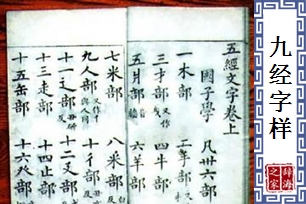 五經文字卷上
國子學 凡卅六部
一木部 二手部
三才部 四牛部
五月部 六羊部
七米部 八米部
九人部 十彳部
十一辵部 十二夂部
十三走部 十四止部
十五缶部 十六癶部
九经字样
辞海之家